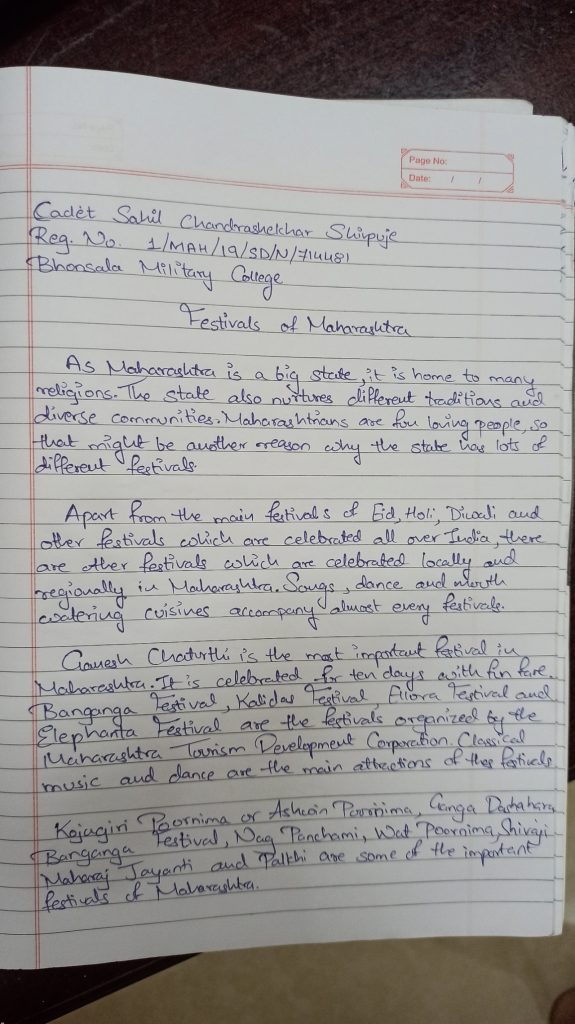 Page No:
Date: / /
Cadet Sahil Chandrashekhar Shirpuje
Reg. No. 1/MAH/19/SD/N/714481
Bhonsala Military College
Festivals of Maharashtra
As Maharashtra is a big state, it is home to many
religions. The state also nurtures different traditions and
diverse communities. Maharashtrians are fun loving people, so
that might be another reason why the state has lots of
different festivals.
Apart from the main festivals of Eid, Holi, Diwali and
other festivals which are celebrated all over India, there
are other festivals which are celebrated locally and
regionally in Maharashtra. Songs, dance and mouth
watering cuisines accompany almost every festivals.
Ganesh Chaturthi is the most important festival in
Maharashtra. It is celebrated for ten days with fin fare.
Banganga Festival, Kalidas Festival, Ellora Festival and
Elephanta Festival are the festivals organized by the
Maharashtra Tourism Development Corporation. Classical
music and dance are the main attractions of these festivals
Kojagiri Poornima or Ashwin Poornima, Ganga Dashahara
Banganga Festival, Nag Panchami, Wat Poornima, Shivaji
Maharaj Jayanti and Palkhi are some of the important
festivals of Maharashtra.